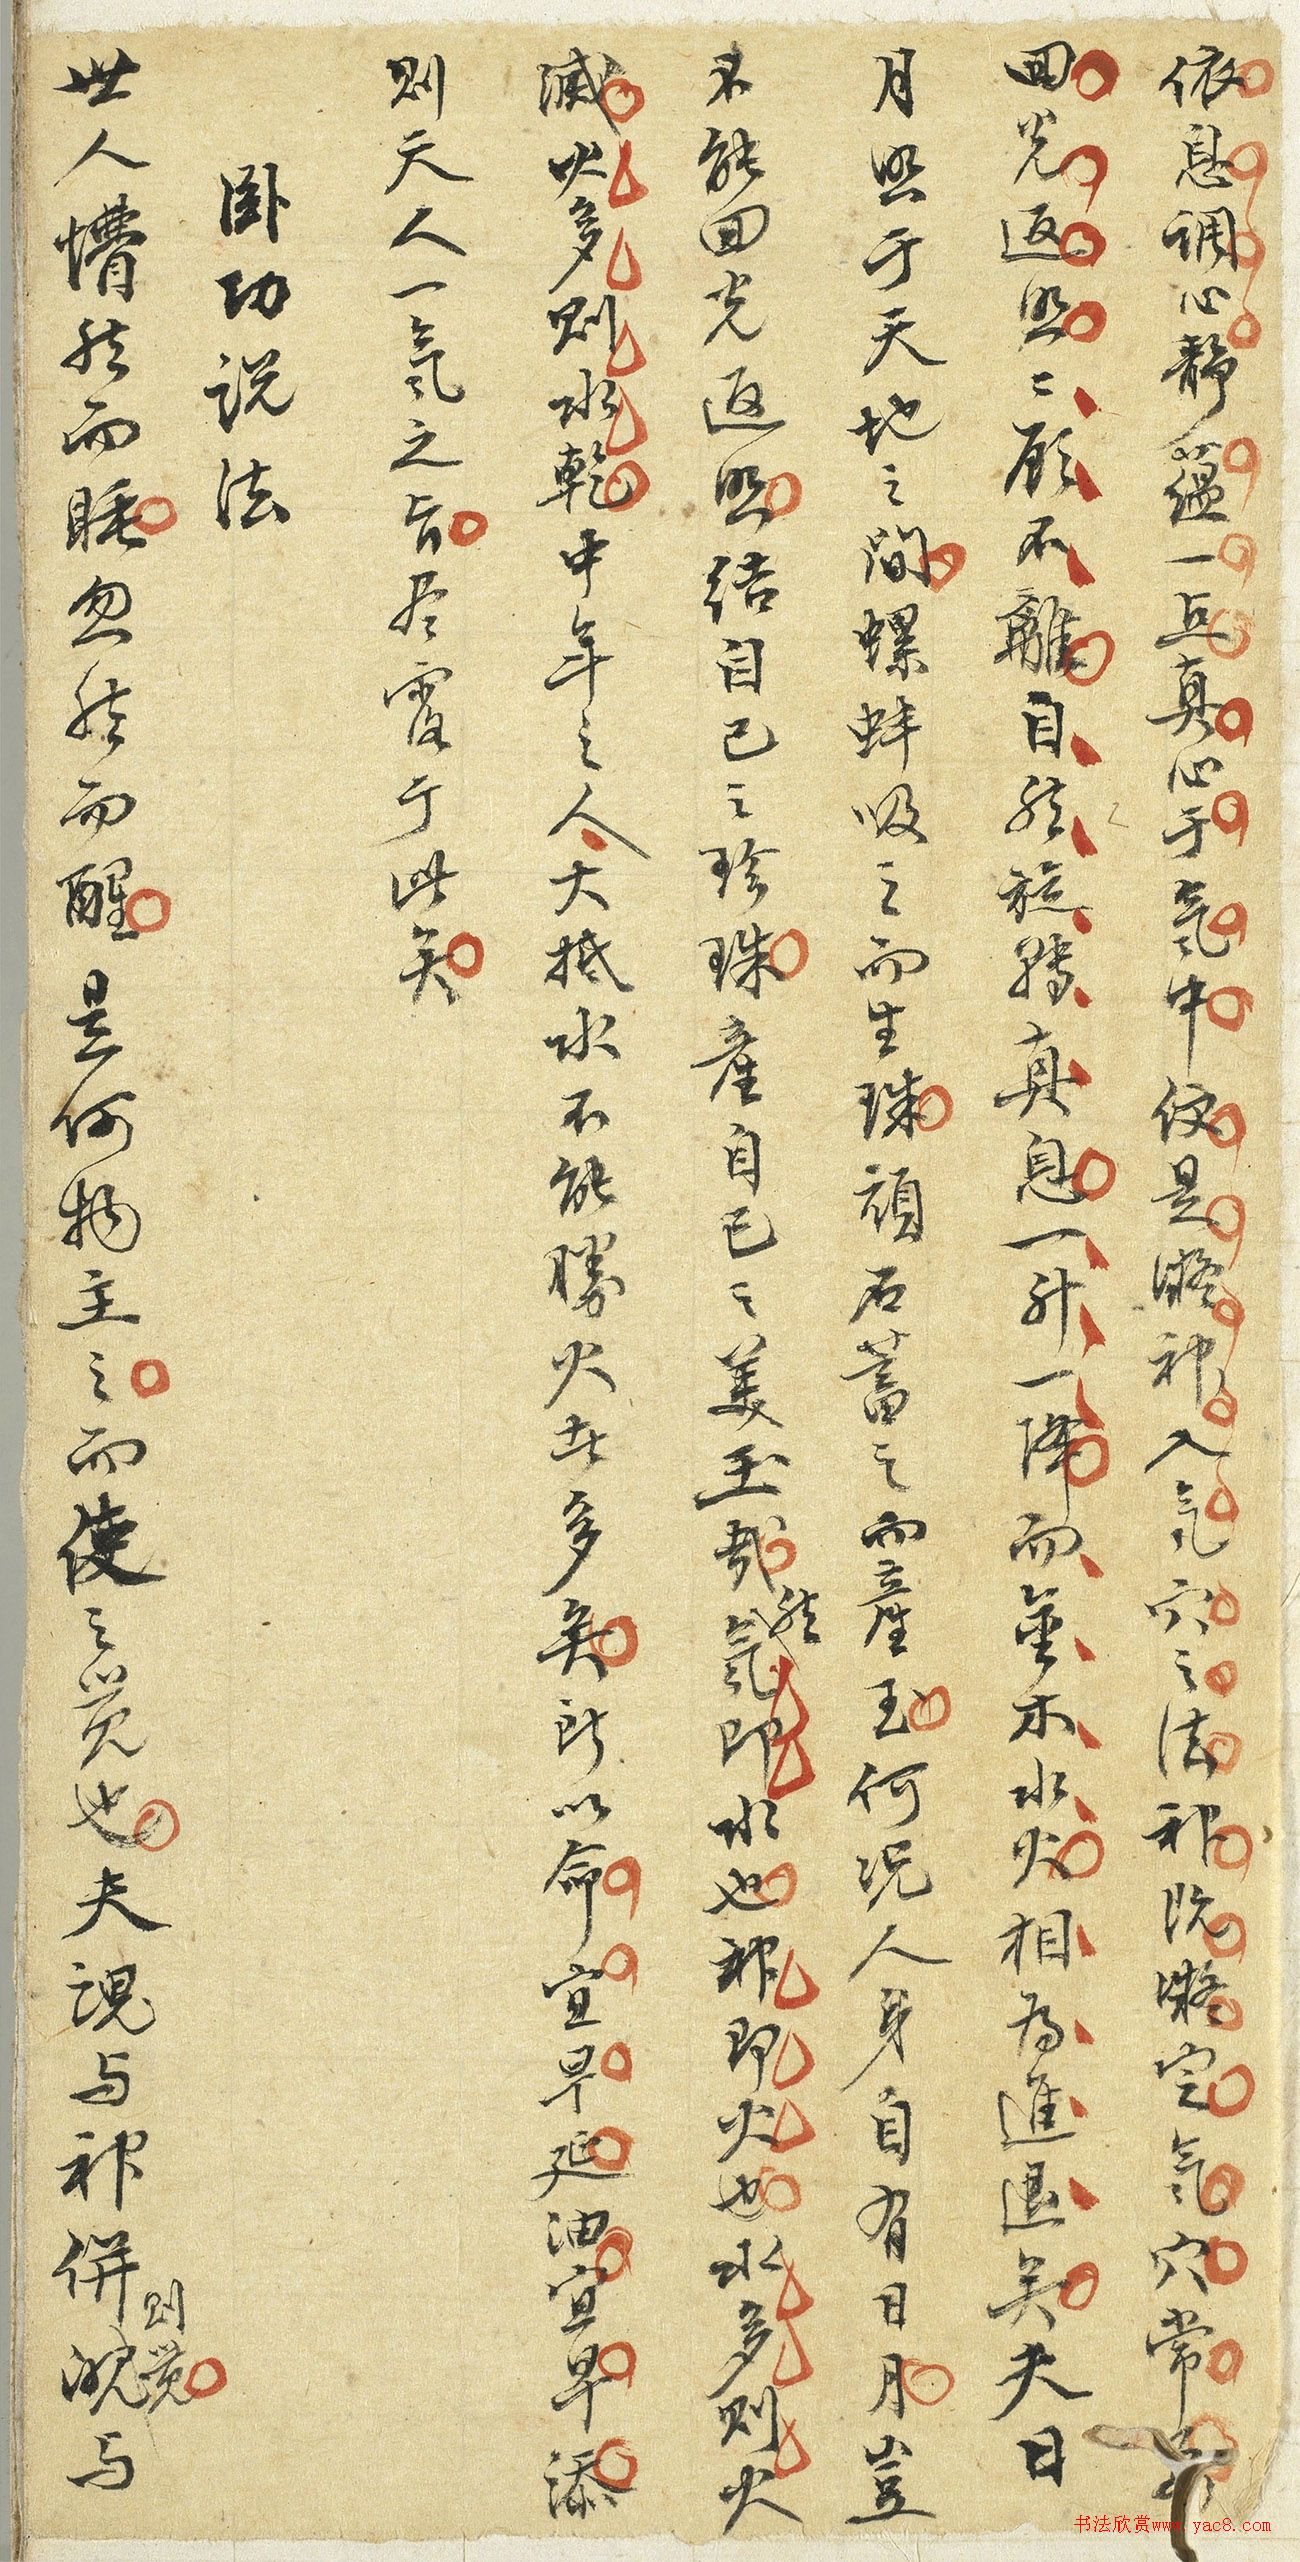 依息调心静蕴一点真心于气中便是凝神入气穴之法神既凝定气穴常要
回光返照二顾不離自然旋转真息一升一降而金木水火相为進退矣夫日
月照于天地之間螺蚌吸之而生珠頑石蓄之而產玉何况人身自有日月豈
不能回光返照结自己之珍珠產自己之美玉哉然气即水也神即火也水多則火
滅火多則水乾中年之人大抵水不能勝火者多矣所以命宜早延油宜早添
則天人一气之旨尽露于此矣
卧功说法
世人懵然而睡忽然而醒是何物主之而使之觉也夫魂与神併則觉魄与
书法欣赏www.yac8.com